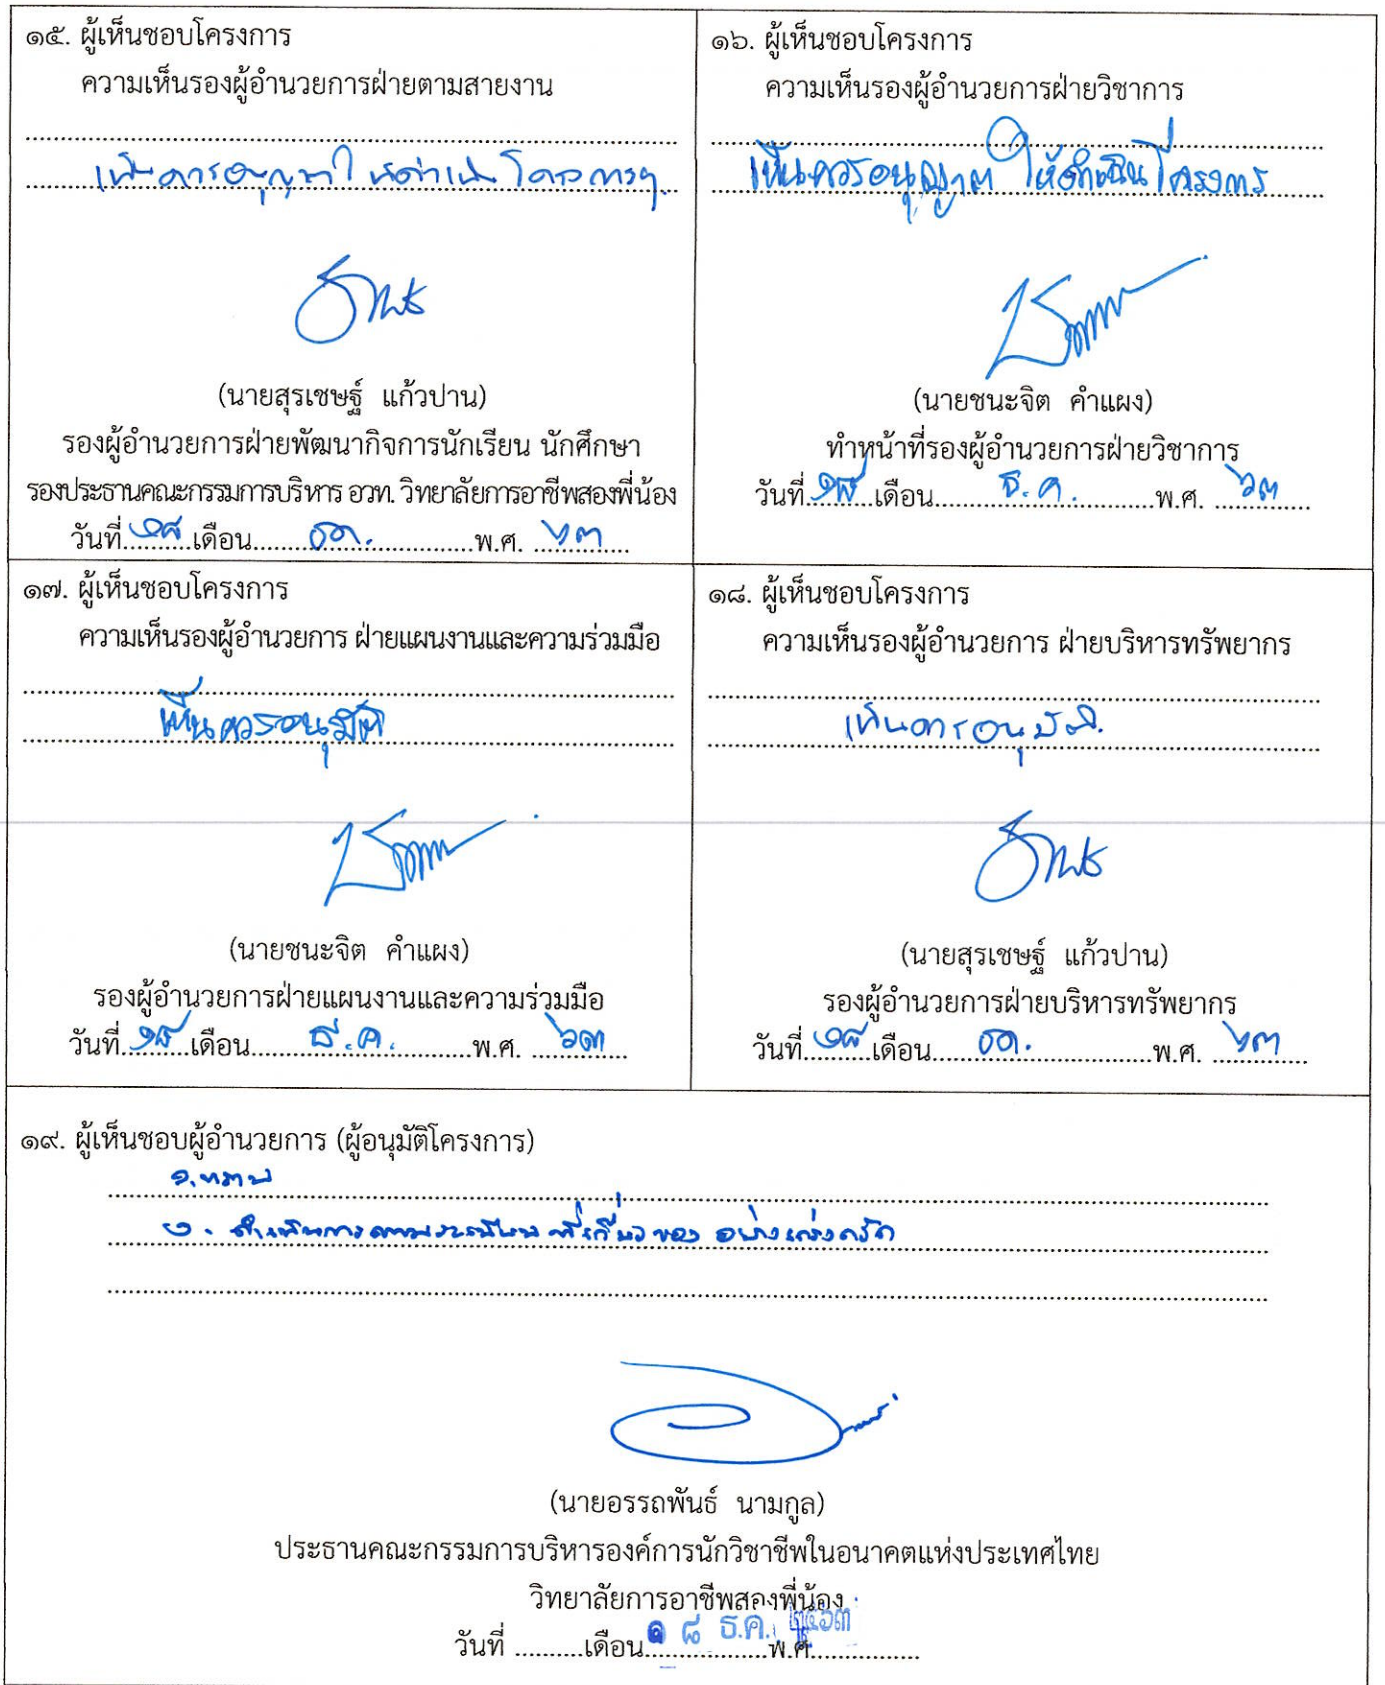 ๑๕. ผู้เห็นชอบโครงการ
ความเห็นรองผู้อำนวยการฝ่ายตามสายงาน
เห็นควรอนุญาตให้ดำเนินโครงการฯ
(นายสุรเชษฐ์ แก้วปาน)
รองผู้อำนวยการฝ่ายพัฒนากิจการนักเรียน นักศึกษา
รองประธานคณะกรรมการบริหาร อวท. วิทยาลัยการอาชีพสองพี่น้อง
วันที่..๑๘..เดือน.....ธค......พ.ศ. ..๖๓..
๑๖. ผู้เห็นชอบโครงการ
ความเห็นรองผู้อำนวยการฝ่ายวิชาการ
เห็นควรอนุญาต ให้ดำเนินโครงการ
(นายชนะจิต คำแผง)
ทำหน้าที่รองผู้อำนวยการฝ่ายวิชาการ
วันที่..๑๘..เดือน.....ธ.ค......พ.ศ. ..๖๓..
๑๗. ผู้เห็นชอบโครงการ
ความเห็นรองผู้อำนวยการ ฝ่ายแผนงานและความร่วมมือ
เห็นควรอนุมัติ
(นายชนะจิต คำแผง)
รองผู้อำนวยการฝ่ายแผนงานและความร่วมมือ
วันที่..๑๘..เดือน.....ธ.ค......พ.ศ. ..๖๓..
๑๘. ผู้เห็นชอบโครงการ
ความเห็นรองผู้อำนวยการ ฝ่ายบริหารทรัพยากร
เห็นควรอนุมัติ.
(นายสุรเชษฐ์ แก้วปาน)
รองผู้อำนวยการฝ่ายบริหารทรัพยากร
วันที่..๑๘..เดือน.....ธค......พ.ศ. ..๖๓..
๑๙. ผู้เห็นชอบผู้อำนวยการ (ผู้อนุมัติโครงการ)
๑. ทราบ
๒. ดำเนินการตามระเบียบที่เกี่ยวของ อย่างเคร่งครัด
(นายอรรถพันธ์ นามกูล)
ประธานคณะกรรมการบริหารองค์การนักวิชาชีพในอนาคตแห่งประเทศไทย
วิทยาลัยการอาชีพสองพี่น้อง
วันที่ ..........เดือน..................พ.ศ................
๑ ๘ ธ.ค. ๒๕๖๓